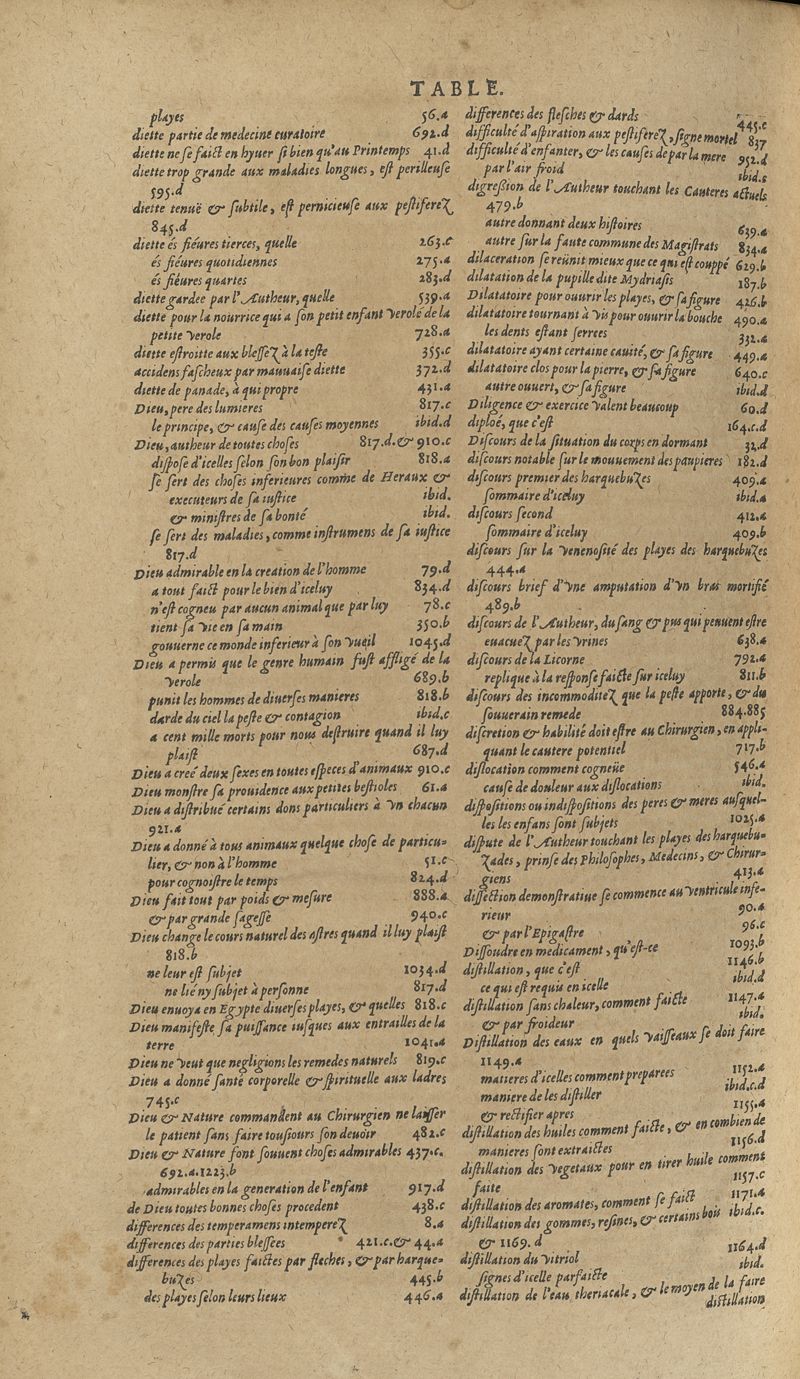 TABLE.
playes 56.a
diette partie de medecine curatoire 692.d
diette ne se faict en hyuer si bien qu'au Printemps 41.d
diette trop grande aux maladies longues, est perilleuse
595.d
diette tenuë & subtile, est pernicieuse aux pestiferez
845.d
diette és fiéures tierces, quelle 263.c
és fiéures quotidiennes 275.a
és fiéures quartes 283.d
diette gardee par l'Autheur, quelle 539.a
diette pour la nourrice qui a son petit enfant verolé de la
petite verole 728.a
diette estroitte aux blessez à la teste 355.c
accidens fascheux par mauuaise diette 372.d
diette de panade, à qui propre 431.a
Dieu, pere des lumieres 817.c
le principe, & cause des causes moyennes ibid.d
Dieu, autheur de toutes choses 817.d.& 910.c
dispose d'icelles selon son bon plaisir 818.a
se sert des choses inferieures comme de Heraux &
executeurs de sa iustice ibid.
& ministres de sa bonté ibid.
se sert des maladies, comme instrumens de sa iustice
817.d
Dieu admirable en la creation de l'homme 79.d
a tout faict pour le bien d'iceluy 834.d
n'est cogneu par aucun animal que par luy 78.c
tient sa vie en sa main 350.b
gouuerne ce monde inferieur à son vueil 1045.d
Dieu a permis que le genre humain fust affligé de la
verole 689.b
punit les hommes de diuerses manieres 818.b
darde du ciel la peste & contagion ibid.c
a cent mille morts pour nous destruire quand il luy
plaist 687.d
Dieu a creé deux sexes en toutes especes d'animaux 910.c
Dieu monstre sa prouidence aux petites bestioles 61.a
Dieu a distribué certains dons particuliers à vn chacun
921.a
Dieu a donné à tous animaux quelque chose de particu-
lier, & non à l'homme 51.c
pour cognoistre le temps 824.d
Dieu fait tout par poids & mesure 888.a
& par grande sagesse 940.c
Dieu change le cours naturel des astres quand il luy plaist
818.b
ne leur est subjet 1034.d
ne lié ny subjet à personne 817.d
Dieu enuoya en Egypte diuerses playes, & quelles 818.c
Dieu manifeste sa puissance iusques aux entrailles de la
terre 1041.a
Dieu ne veut que negligions les remedes naturels 819.c
Dieu a donné santé corporelle & spirituelle aux ladres
745.c
Dieu & Nature commandent au Chirurgien ne laisser
le patient sans faire tousiours son deuoir 482.c
Dieu & Nature font souuent choses admirables 437.c.
692.a.1223.b
admirables en la generation de l'enfant 917.d
de Dieu toutes bonnes choses procedent 438.c
differences des temperamens intemperez 8.a
differences des parties blessees 421.c.& 44.a
differences des playes faictes par fleches, & par harque-
buzes 445.b
des playes selon leurs lieux 446.a
differences des flesches & dards 445.c
difficulté d'aspiration aux pestiferez, signe mortel 837
difficulté d'enfanter, & les causes de par la mere 952.d
par l'air froid ibid.
digression de l'Autheur touchant les Cauteres actuels
479.b
autre donnant deux histoires 639.a
autre sur la faute commune des Magistrats 834.a
dilaceration se reünit mieux que ce qui est couppé 629.b
dilatation de la pupille dite Mydriasis 187.b
Dilatatoire pour ouurir les playes, & sa figure 426.b
dilatatoire tournant à vis pour ouurir la bouche 490.a
les dents estant serrees 332.a
dilatatoire ayant certaine cauité, & sa figure 449.a
dilatatoire clos pour la pierre, & sa figure 640.c
autre ouuert, & sa figure ibid.d
Diligence & exercice valent beaucoup 60.d
diploé, que c'est 164.c.d
Discours de la situation du corps en dormant 32.d
discours notable sur le mouuement des paupieres 182.d
discours premier des harquebuzes 409.a
sommaire d'iceluy ibid.a
discours second 412.a
sommaire d'iceluy 409.b
discours sur la venenosité des playes des harquebuzes
444.a
discours brief d'vne amputation d'vn bras mortifié
489.b
discours de l'Autheur, du sang & pus qui peuuent estre
euacuez par les vrines 638.a
discours de la Licorne 792.a
replique à la response faicte sur iceluy 811.b
discours des incommoditez que la peste apporte, & du
souuerain remede 884.885
discretion & habilité doit estre au Chirurgien, en appli-
quant le cautere potentiel 717.b
dislocation comment cogneüe 546.a
cause de douleur aux dislocations ibid.
dispositions ou indispositions des peres & meres ausquel-
les les enfans sont subjets 1025.a
dispute de l'Autheur touchant les playes des harquebu-
zades, prinse des Philosophes, Medecins, & Chirur-
giens 413.a
dissection demonstratiue se commence au ventricule infe-
rieur 90.a
& par l'Epigastre 96.c
Dissoudre en medicament, qu'est-ce 1093.b
distillation, que c'est 1146.b
ce qui est requis en icelle ibid.d
distillation sans chaleur, comment faicte 1147.a
& par froideur ibid.
Distillation des eaux en quels vaisseaux se doit faire
1149.a
matieres d'icelles comment preparees 1152.a
maniere de les distiller ibid.c.d
& rectifier apres 1155.a
distillation des huiles comment faicte, & en combien de
manieres sont extraictes 1156.d
distillation des vegetaux pour en tirer huile comment
faite 1157.c
distillation des aromates, comment se faict 1171.a
distillation des gommes, resines, & certains bois ibid.c.
& 1169.d
distillation du vitriol 1164.d
signes d'icelle parfaicte ibid.
distillation de l'eau theriacale, & le moyen de la faire
distillation